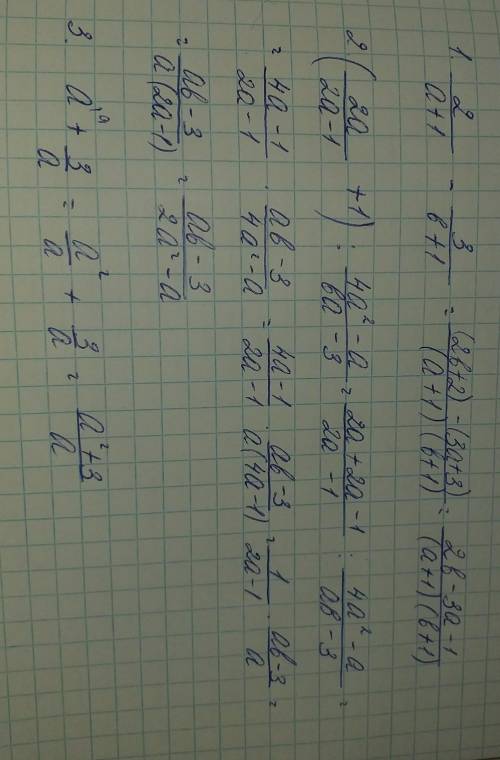 1. 2/(a+1) - 3/(b+1) = ((2b+2)-(3a+3))/((a+1)(b+1)) = (2b-3a-1)/((a+1)(b+1))
2 (2a/(2a-1) + 1) : (4a²-a)/(6a-3) = (2a+2a-1)/(2a-1) : (4a²-a)/(ab-3) =
= (4a-1)/(2a-1) · (ab-3)/(4a²-a) = (4a-1)/(2a-1) · (ab-3)/(a(4a-1)) = 1/(2a-1) · (ab-3)/a =
= (ab-3)/(a(2a-1)) = (ab-3)/(2a²-a)
3. a\a + 3/a = a²/a + 3/a = (a²+3)/a